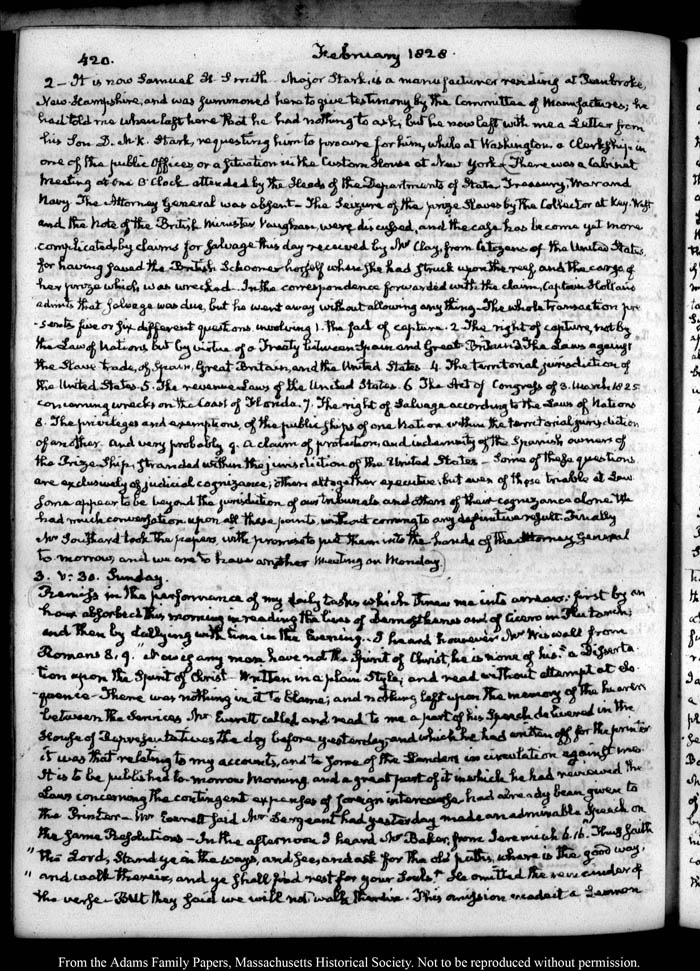 420.
February 1828.
2 – It is now Samuel H Smith – Major Stark, is a manufacturer residing at Pembroke,
New-Hampshire, and was summoned here to give testimony by the Committee of Manufactures; he
had told me when left here that he had nothing to ask, but he now left with me a Letter from
his Son D. McK. Stark, requesting him to procure for him, while at Washington a Clerkship in
one of the public Offices, or a situation in the Custom House at New York – There was a Cabinet
Meeting at One O'Clock attended by the Heads of the Departments of State, Treasury, War and
Navy. The Attorney General was absent – The Seizure of the prize Slaves by the Collector at Key-West
and the Note of the British Minister Vaughan, were discussed, and the case has become yet more
complicated, by claims for Salvage this day received by Mr Clay, from Citizens of the United States,
for having saved the British Schooner herself when she had struck upon the reef, and the cargo of
her prize which was wrecked – In the correspondence forwarded with the claim, Captain Holland
admits that Salvage was due, but he went away without allowing any thing – The whole transaction pre-
-sents five or six different questions, involving 1. The fact of capture. 2 The right of capture, not by
the Law of Nations but by virtue of a Treaty between Spain and Great-Britain 3. The Laws against
the Slave trade, of Spain, Great Britain, and the United States. 4. The territorial jurisdiction of
the United States. 5. The revenue Laws of the United States. 6 The Act of Congress of 3. March 1825
concerning wrecks on the Coast of Florida. 7. The right of Salvage according to the Laws of Nations
8. The privileges and exemptions, of the public ships of one Nation within the territorial jurisdiction
of another. And very probably 9. A claim of protection, and indemnity of the Spanish owners of
the Prize-Ship, stranded within the jurisdiction of the United States – Some of these questions
are exclusively of judicial cognizance; others altogether executive, but even of those triable at Law
some appear to be beyond the jurisdiction of our tribunals and others of their cognizance alone. We
had much conversation upon all these points, without coming to any definitive result. Finally
Mr Southard took the papers, with promise to put them into the hands of the Attorney General
to-morrow, and we are to have another Meeting on Monday.
3. V: 30. Sunday.
Remiss in the performance of my daily tasks which threw me into arrears: first by an
hour absorbed this morning in reading the lives of Demosthenes and of Cicero in Plutarch;
and then by dallying with time in the Evening. I heard however Mr Wiswall from
Romans 8. 9. Now if any man have not the Spirit of Christ, he is none of his: a Disserta-
tion upon the Spirit of Christ. Written in a plain style; and read without attempt at elo-
-quence – There was nothing in it to blame; and nothing left upon the memory of the hearers
Between the Services Mr Everett called and read to me a part of his Speech delivered in the
House of Representatives the day before yesterday, and which he had written off for the printer
it was that relating to my accounts, and to some of the slanders in circulation against me.
It is to be published to-morrow Morning, and a great part of it in which he had reviewed the
Laws concerning the contingent expenses of foreign intercourse had already been given to
the Printer – Mr Everett said Mr Sergeant had yesterday made an admirable Speech on
the same Resolutions – In the afternoon I heard Mr Baker, from Jeremiah 6. 16. Thus saith
"the Lord, Stand ye in the ways, and see, and ask for the old paths, where is the good way,
"and walk therein, and ye shall find rest for your souls." He omitted the remainder of
the verse – But they said we will not walk therein. This omission made it a Sermon
From the Adams Family Papers, Massachusetts Historical Society. Not to be reproduced without permission.